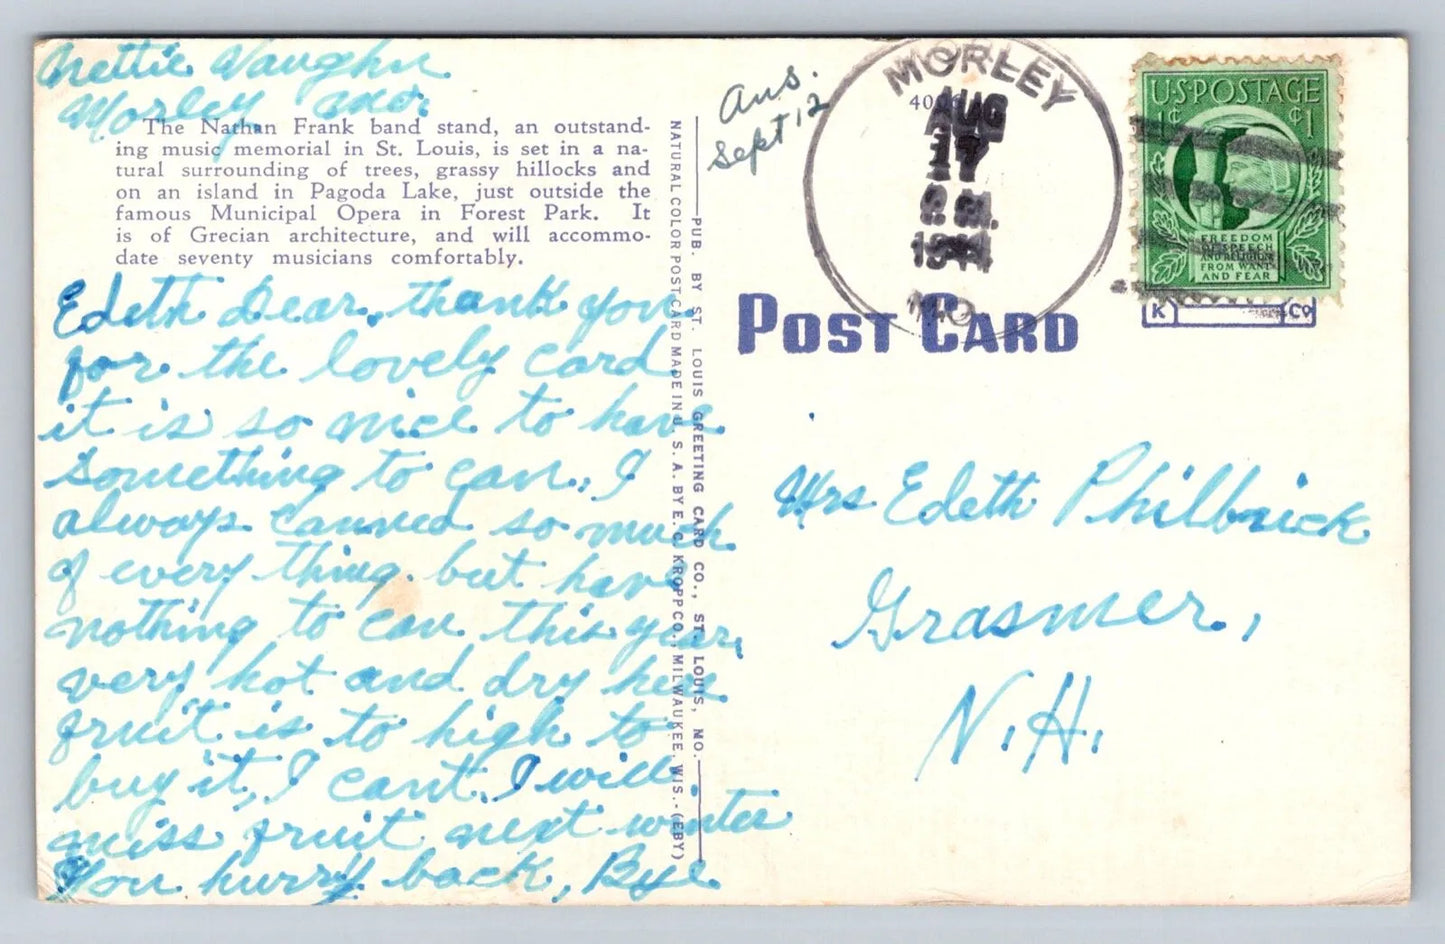 Nettie Vaughn
Morley Mo.
The Nathan Frank band stand, an outstand-
ing music memorial in St. Louis, is set in a na-
tural surrounding of trees, grassy hillocks and
on an island in Pagoda Lake, just outside the
famous Municipal Opera in Forest Park. It
is of Grecian architecture, and will accommo-
date seventy musicians comfortably.
Edeth Dear, thank you
for the lovely card
it is so nice to have
something to can. I
always canned so much
of every thing. but have
nothing to can this year,
very hot and dry here
fruit is to high to
buy it, I cant. I will
miss fruit next winter
You hurry back, Bye
NATURAL COLOR POST CARD MADE IN U. S. A. BY E. C. KROPP CO., MILWAUKEE, WIS.-(EBY)
PUB. BY ST. LOUIS GREETING CARD CO., ST. LOUIS, MO.
Ans.
Sept 12
MORLEY
AUG
17
P.M.
1944
MO.
U·S·POSTAGE
1¢ ¢1
FREEDOM
OF SPEECH
AND RELIGION
FROM WANT
AND FEAR
K Co
POST CARD
Mrs Edeth Philbrick
Grasmer,
N.H.